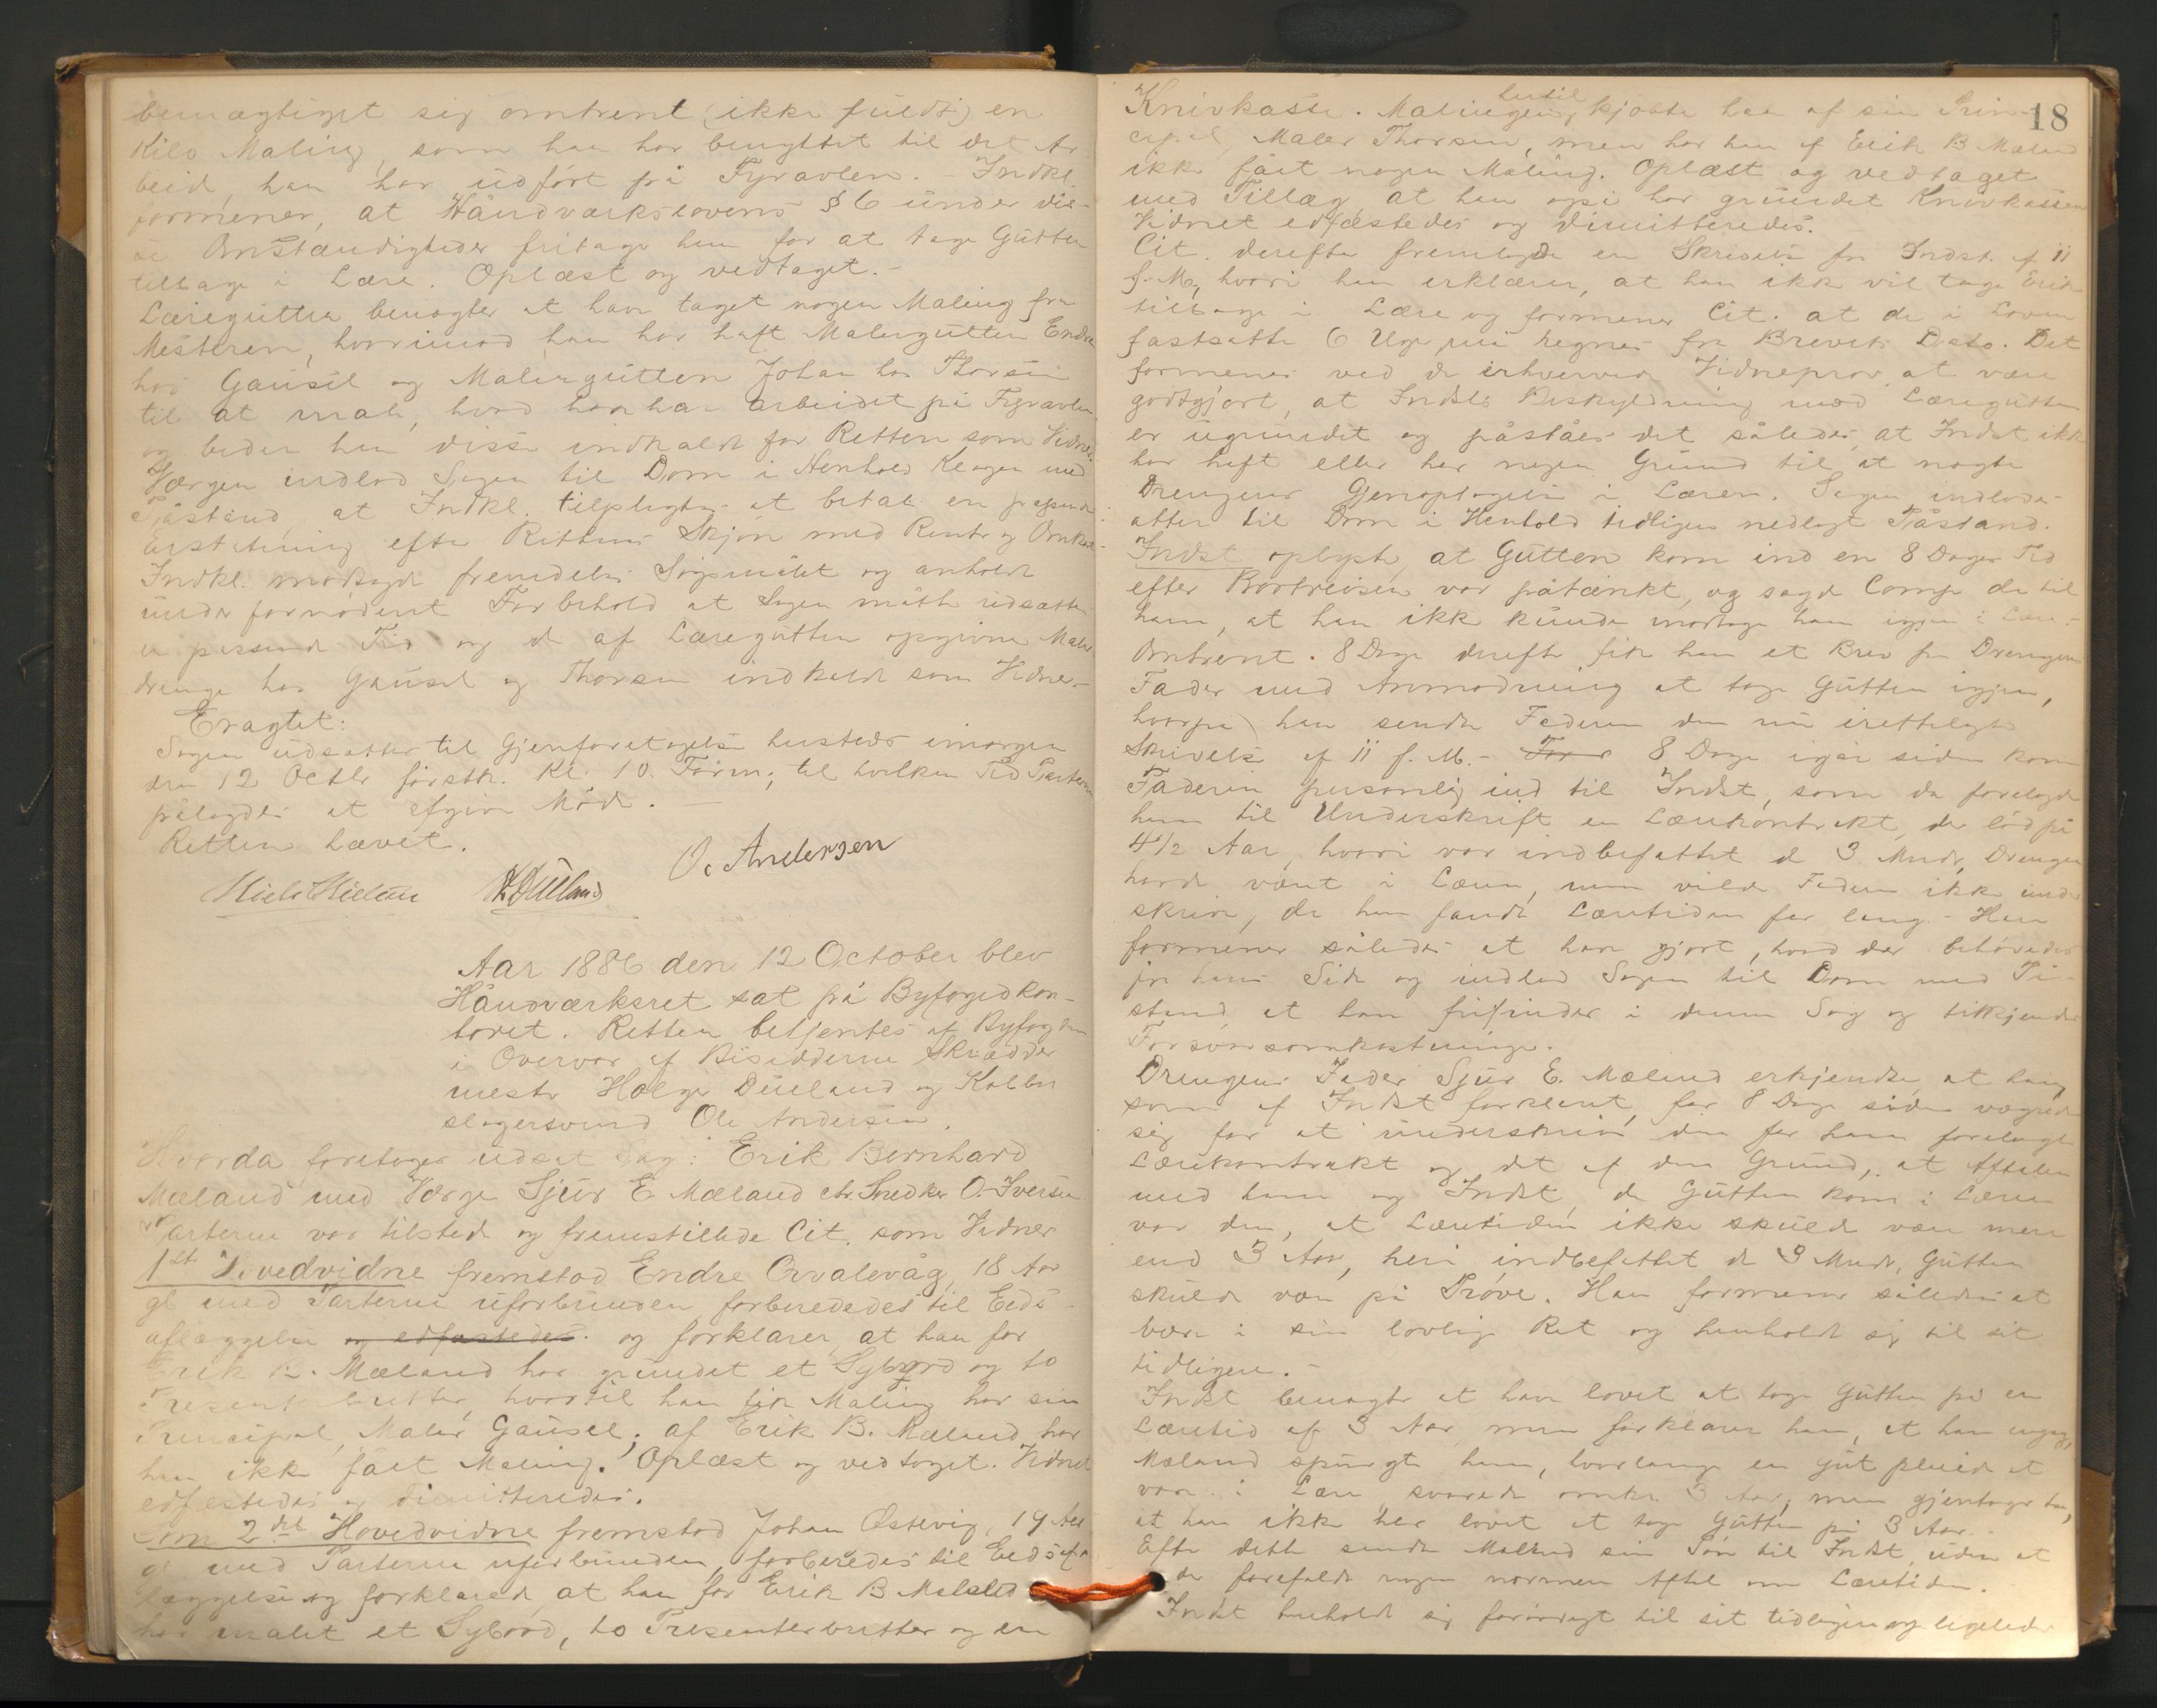 bemægtiget sig omtrent (ikke fuldt) en
Kilo Maling, som han har benyttet til det Ar
beid, han har udført på Fyravlen. - Indkl.
formener, at Håndværkslovens § 6 under dis-
se Omstændigheder fritager ham for at tage Gutten
tilbage i Lære. Oplæst og vedtaget. -
Læregutten benægter at have taget nogen Maling fra
Mesteren, hvorimod han har haft Malergutten Endre
hos Gausel og Malergutten Johan hos Thorsen
til at male, hvad han har arbeidet på Fyravlen
og beder han disse indkaldt for Retten som Vidner.
Værgen indlod Sagen til Dom i Henhold Klagen med
Påstand, at Indkl. tilpligtes at betale en passende
Erstatning efter Rettens Skjøn med Renter og Omkost-
Indkl. modsagde fremdeles Søgsmålet og anholdt
under fornødent Forbehold at Sagen måtte udsættes
en passende Tid og de af Læregutten opgivne Maler
drenge hos Gausel og Thorsen indkaldt som Vidner. -
Eragtet:
Sagen udsættes til Gjenforetagelse hersteds imorgen
den 12 Octbr førstk. Kl. 10 Form., til hvilken Tid Parterne
pålagdes at afgive Møde. -
Retten hævet.
O. Andersen
Aar 1886 den 12 October blev
Håndværksret sat på Byfogedkon-
toret. Retten betjentes af Byfogden
i Overvær af Bisidderne Skrædder
mester Holger Dueland og Kobber
slagersvend Ole Andersen.
Hvorda foretoges udsat Sag: Erik Bernhard
Mæland med Værge Sjur E. Mæland ctr. Snedker O. Iversen
Parterne var tilstede og fremstillede Cit. som Vidner
1ste Hovedvidne fremstod Endre Orvalevåg, 18 Aar
gl. med Parterne uforbunden, forberededes til Eeds-
aflæggelse og edfæstedes. og forklarer, at han for
Erik B. Mæland har grundet et Sybord og to
Presenterbretter, hvortil han fik Maling hos sin
Principal, Maler Gausel; af Erik B. Mæland har
han ikke fået Maling. Oplæst og vedtaget. Vidnet
edfæstedes og dimitteredes.
Som 2det Hovedvidne fremstod Johan Østevig, 19 Aar
gl. med Parterne uforbunden, forberedes til Eedsaf-
læggelse og forklarede, at han for Erik B Mæland
har malet et Sybord, to Presenterbretter og en
18
Knivkasse. Malingen hertil kjøbte han af sin Prin
cipal, Maler Thorsen, men har han af Erik B Mæland
ikke fået nogen Maling. Oplæst og vedtaget
med Tillæg, at han også har grundet Knivkassen
Vidnet edfæstedes og dimitteredes.
Cit. derefter fremlagde en Skrivelse fra Indst. af 11
f. M., hvori han erklærer, at han ikke vil tage Erik
tilbage i Lære og formener Cit. at de i Loven
fastsatte 6 Uger må regnes fra Brevets Dato. Det
formenes ved de erhvervede Vidneprov at være
godtgjort, at Indsts Beskyldning mod Læregutten
er ugrundet og påståes det således, at Indst ikke
har haft eller har nogen Grund til at nægte
Drengens Gjenoptagelse i Læren. Sagen indlodes
atter til Dom i Henhold tidligere nedlagt Påstand.
Indst oplyste, at Gutten kom ind en 8 Dages Tid
efter Bortreisen var påtænkt, og sagde Comp. da til
ham, at han ikke kunde modtage ham igjen i Lære. -
Omtrent 8 Dage derefter fik han et Brev fra Drengens
Fader med Anmodning at tage Gutten igjen,
hvorpå han sendte Faderen den nu irettelagte
Skrivelse af 11 f. M. - For 8 Dage igår siden kom
Faderen personlig ind til Indst, som da forelagde
ham til Underskrift en Lærekontrakt, der lød på
4 1/2 Aar, hvori var indbefattet de 3 Mndr, Drengen
havde været i Lære, men vilde Faderen ikke under
skrive, da han fandt Læretiden for lang. - Han
formener således at have gjort, hvad der behøvedes
fra hans Side og indlod Sagen til Dom med På-
stand, at han frifindes i denne Sag og tilkjendes
Forsvarsomkostninger.
Drengens Fader Sjur E. Mæland erkjendte, at han,
som af Indst forklaret, for 8 Dage siden vægrede
sig for at underskrive den for ham forelagte
Lærekontrakt og det af den Grund, at Aftalen
med ham og Indst, da Gutten kom i Lære
var den, at Læretiden ikke skulde være mere
end 3 Aar, heri indbefattet de 3 Mndr, Gutten
skulde være på Prøve. Han formener således at
være i sin lovlige Ret og henholdt sig til sit
tidligere. -
Indst benægter at have lovet at tage Gutten på en
Læretid af 3 Aar men forklarer han, at han engang,
Mæland spurgte ham, hvorlænge en Gut pleiede at
være i Lære, svarede omkr. 3 Aar, men gjentager han,
at han ikke har lovet at tage Gutten på 3 Aar. -
Efter dette sendte Mæland sin Søn til Indst, uden at
der forefaldt nogen nærmere Aftale om Læretiden.
Indst henholdt sig forøvrigt til sit tidligere og ligeledes